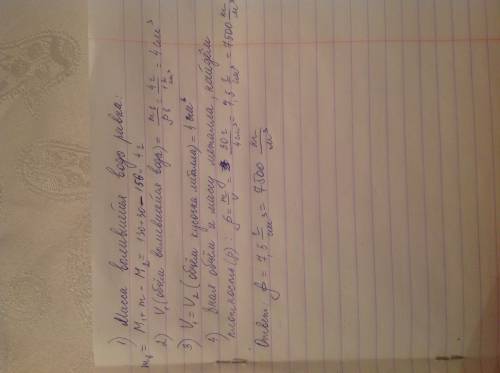 1) Масса вылившейся воды равна:
m₈ = M₁ + m - M₂ = 130 + 30 - 156 = 4 г
2) V₁ (объём вылившейся воды) = m₈/ρ₈ = 4 г / 1 г/см³ = 4 см³
3) V₁ = V₂ (объём кусочка металла) = 4 см³
4) Зная объём и массу металла, найдём
плотность (ρ) : ρ = m/V = 30 г / 4 см³ = 7,5 г/см³ = 7500 кг/м³
Ответ: ρ = 7,5 г/см³ = 7500 кг/м³